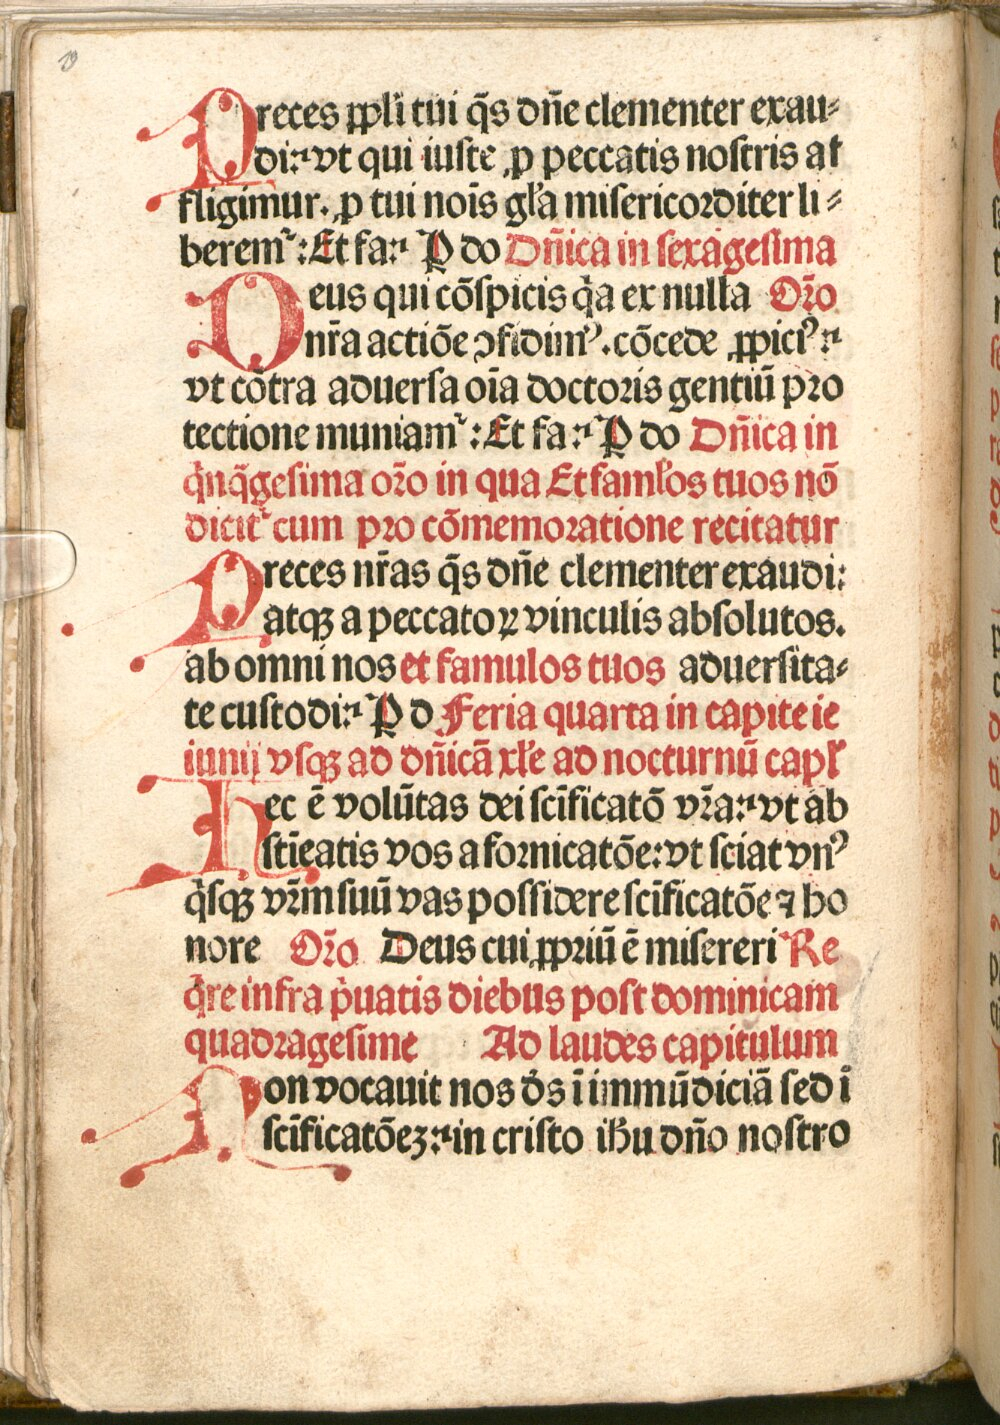 19
Preces ꝓpli tui q̄s dn̄e clementer exau⸗
di: vt qui iuste ꝓ peccatis nostris af
fligimur. ꝓ tui noīs gl̄a misericorditer li⸗
berem᷑: Et fa: P do Dn̄ica in sexagesima
Deus qui cōspicis q̄a ex nulla Oꝛ̄o
nr̄a actiōe ↄfidimꝰ. cōcede ꝓpiciꝰ:
vt cōtra aduersa oīa doctoris gentiū pro
tectione muniam᷑: Et fa: P do Dn̄ica in
q̇nq̄gesima oꝛ̄o in qua Et faml̄os tuos nō
dicit᷑ cum pro cōmemoratione recitatur
Preces nr̄as q̄s dn̄e clementer exaudi:
atqꝫ a peccatoꝝ vinculis absolutos.
ab omni nos et famulos tuos aduersita⸗
te custodi: P d Feria quarta in capite ie
iunij vsqꝫ ad dn̄icā xl̄e ad nocturnū capl̄
Hec ē volūtas dei scīficatō vr̄a: vt ab
stīeatis vos a fornicatōe: vt sciat vnꝰ
q̇sqꝫ vr̄m suū vas possidere scīficatōe ⁊ ho
nore Oꝛ̄o Deus cui ꝓpriū ē misereri Re
q̇re infra ṗuatis diebus post dominicam
quadragesime Ad laudes capitulum
Non vocauit nos ds̄ ī immūdiciā sed ī
scīficatōeꝫ: in cristo ihu dn̄o nostro